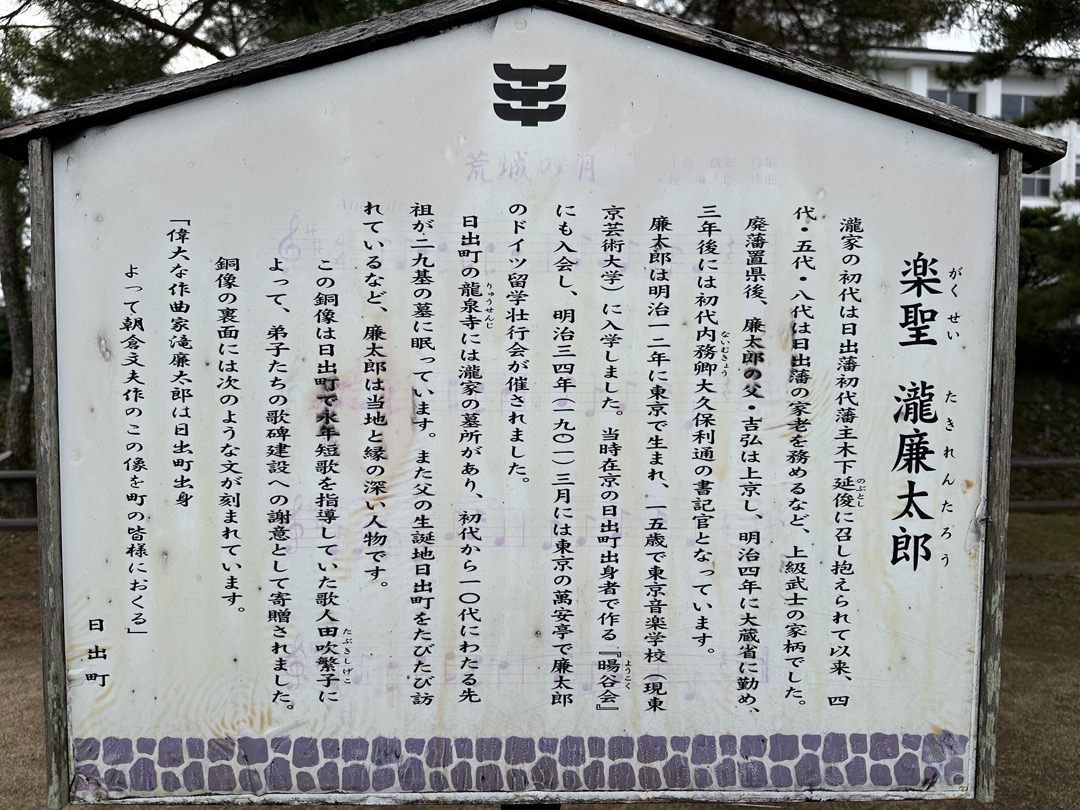 荒城の月
楽聖 瀧廉太郎
がくせい たきれんたろう
瀧家の初代は日出藩初代藩主木下延俊に召し抱えられて以来、四
のぶとし
代・五代・八代は日出藩の家老を務めるなど、上級武士の家柄でした。
廃藩置県後、廉太郎の父・吉弘は上京し、明治四年に大蔵省に勤め、
三年後には初代内務卿大久保利通の書記官となっています。
ないむきょう
廉太郎は明治一二年に東京で生まれ、一五歳で東京音楽学校（現東
京芸術大学）に入学しました。当時在京の日出町出身者で作る『暘谷会』
ようこく
にも入会し、明治三四年（一九〇一）三月には東京の萬安亭で廉太郎
のドイツ留学壮行会が催されました。
日出町の龍泉寺には瀧家の墓所があり、初代から一〇代にわたる先
りゅうせんじ
祖が二九基の墓に眠っています。また父の生誕地日出町をたびたび訪
れているなど、廉太郎は当地と縁の深い人物です。
この銅像は日出町で永年短歌を指導していた歌人田吹繁子に
たぶきしげこ
よって、弟子たちの歌碑建設への謝意として寄贈されました。
銅像の裏面には次のような文が刻まれています。
「偉大な作曲家滝廉太郎は日出町出身
よって朝倉文夫作のこの像を町の皆様におくる」
日出町